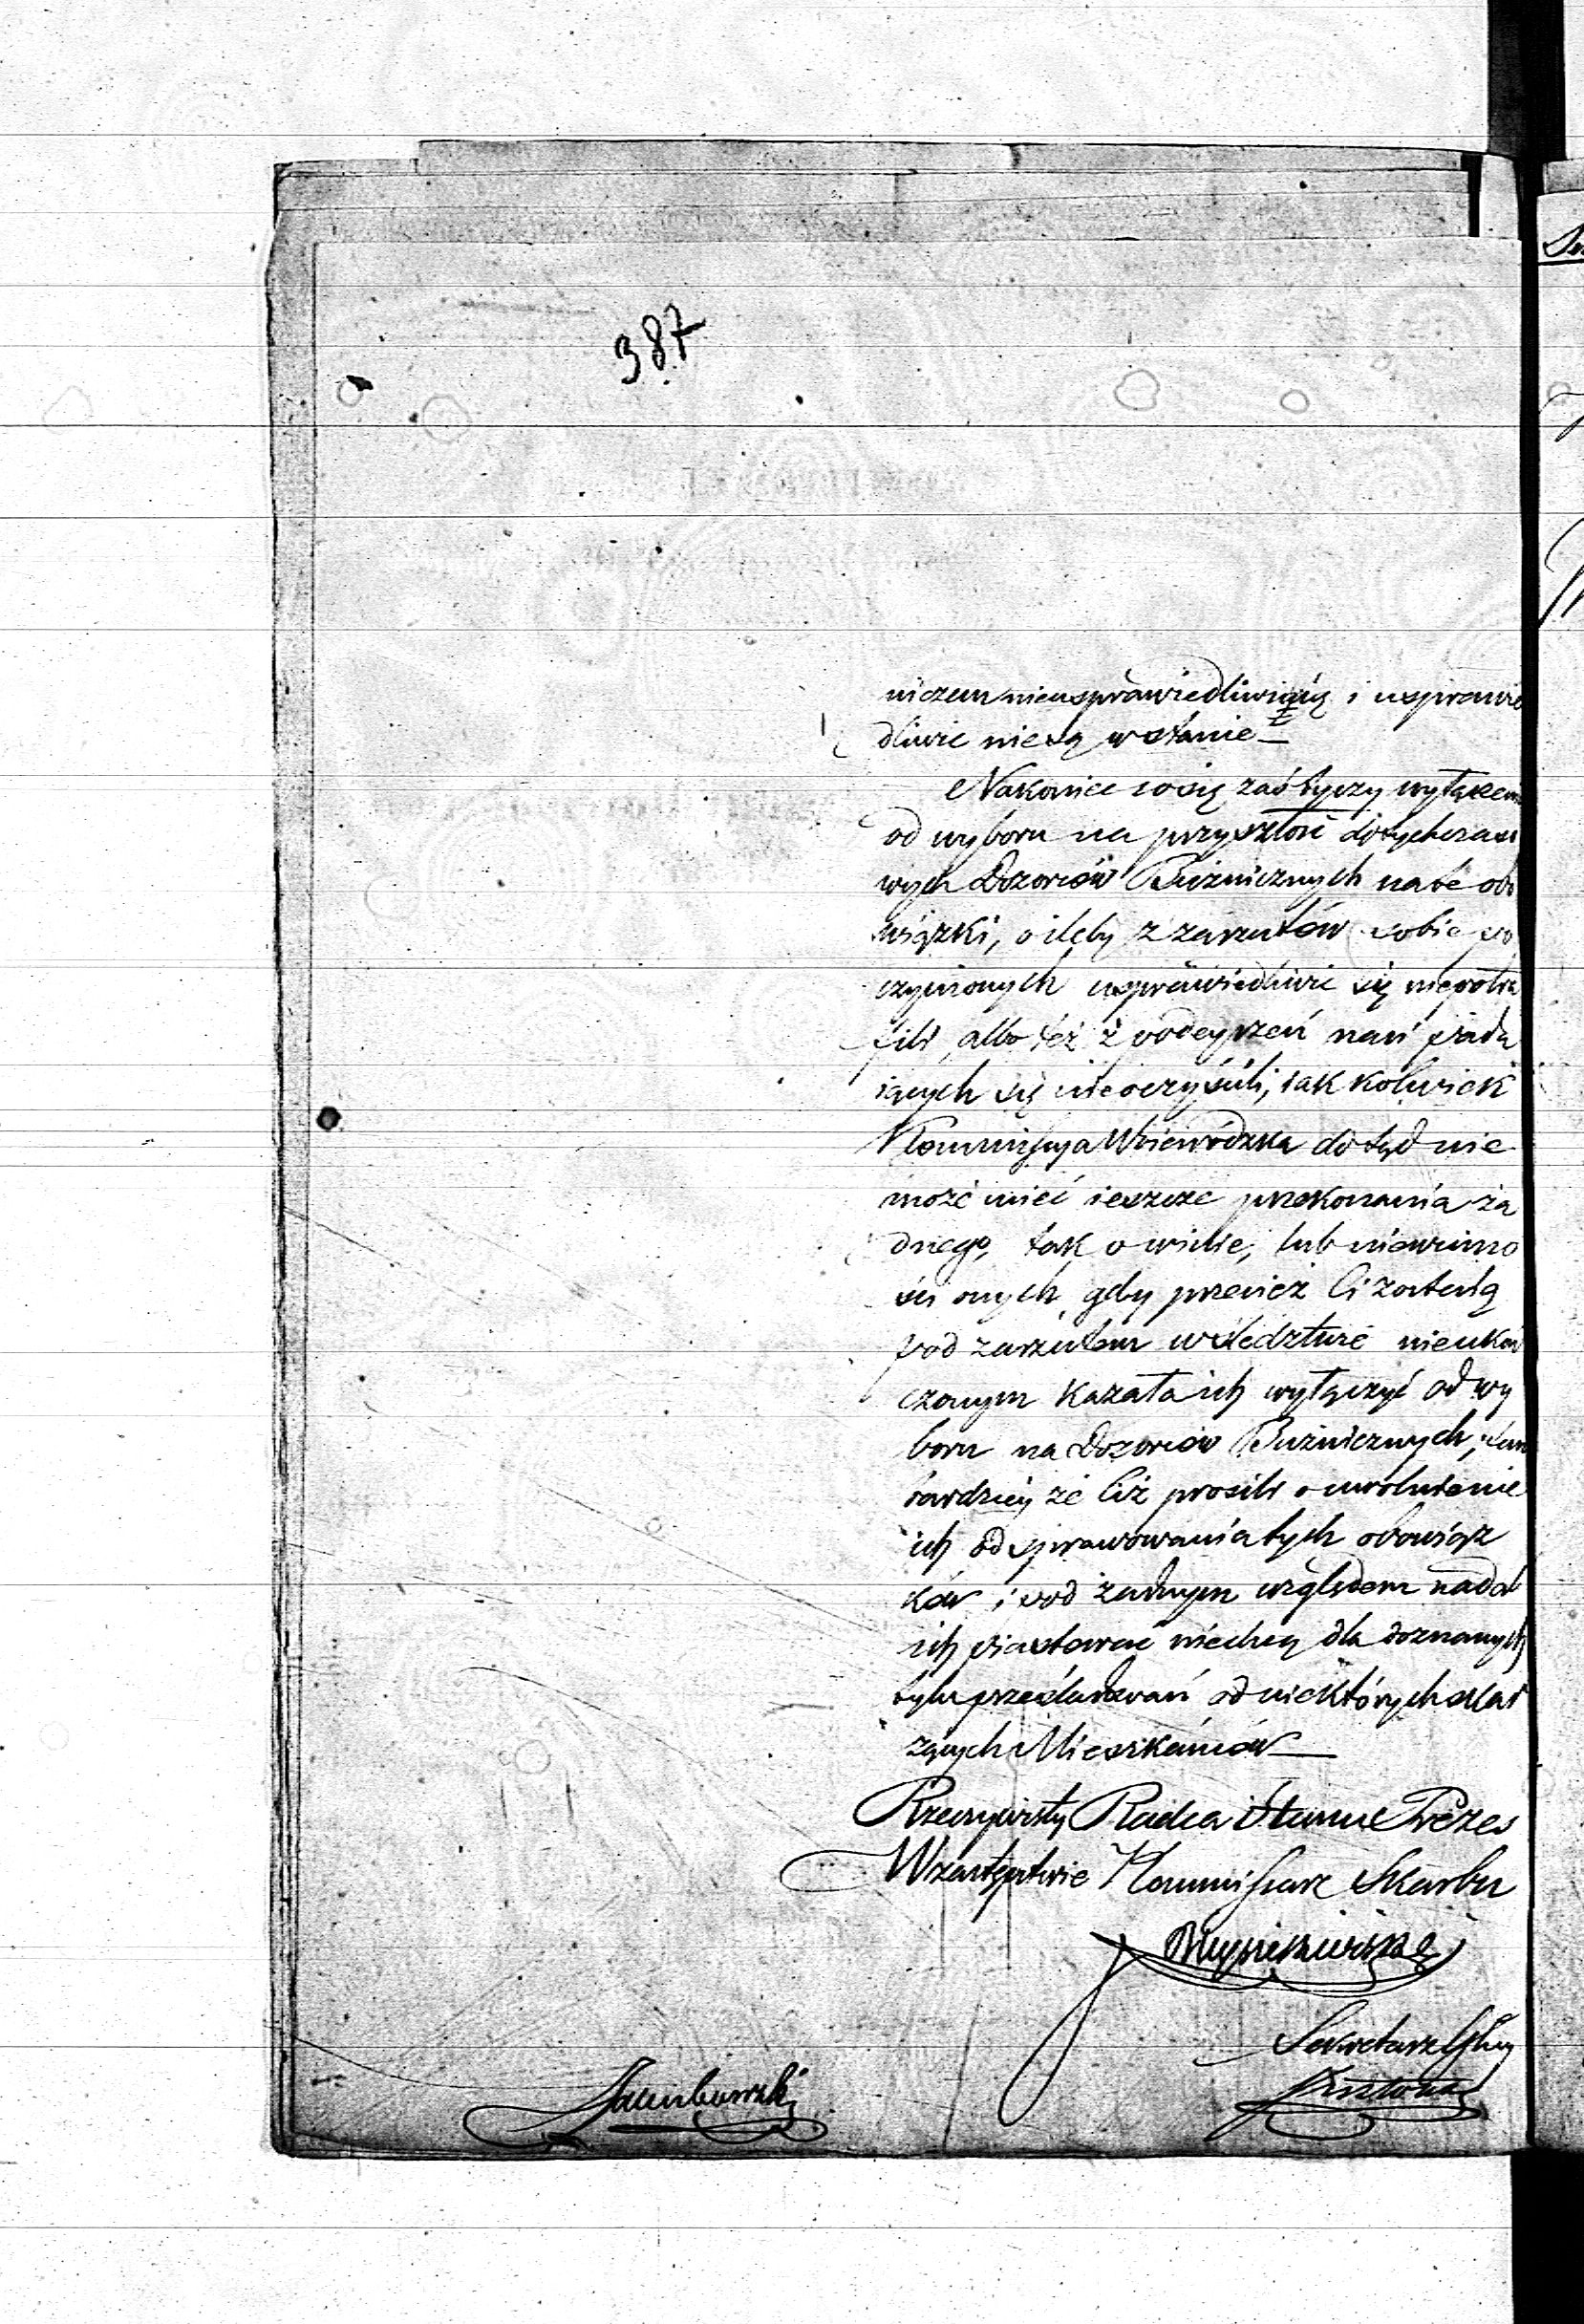 387
niczem nieusprawiedliwiaią i usprawie
dliwić niesą wstanie —
Nakoniec cosię zaś tyczy wyłączeni
od wyboru na przyszłość dotychczaso
wych Dozorców Bużnicznych nate obo
wiązki, o ileby z zarzutów sobie po
czynionych usprawiedliwić się niepotra
fili, albo też z podeyrzeń nań pada
iących się nieoczyścili, iak kolwiek
Kommissya Woiewódzka dotąd nie
może mieć ieszcze przekonania ża
dnego, tak o winie, lub niewinno
ści onych, gdy przecież Ci zostaią
pod zarzutem wśledztwie nieukoń
czonym kazała ich wyłączyć od wy
boru na Dozorców Bużnicznych, tem
bardziey że Ciż prosili o uwolnienie
ich od sprawowania tych obowiąz
ków i pod żadnym względem nadal
ich piastować niechcą dla doznanych
tylu prześladowań od niektórych skar
żących Mieszkańców —
Rzeczywisty Radca Stanu Prezes
Wzastępstwie Kommissarz Skarbu
Sekretarz Głny